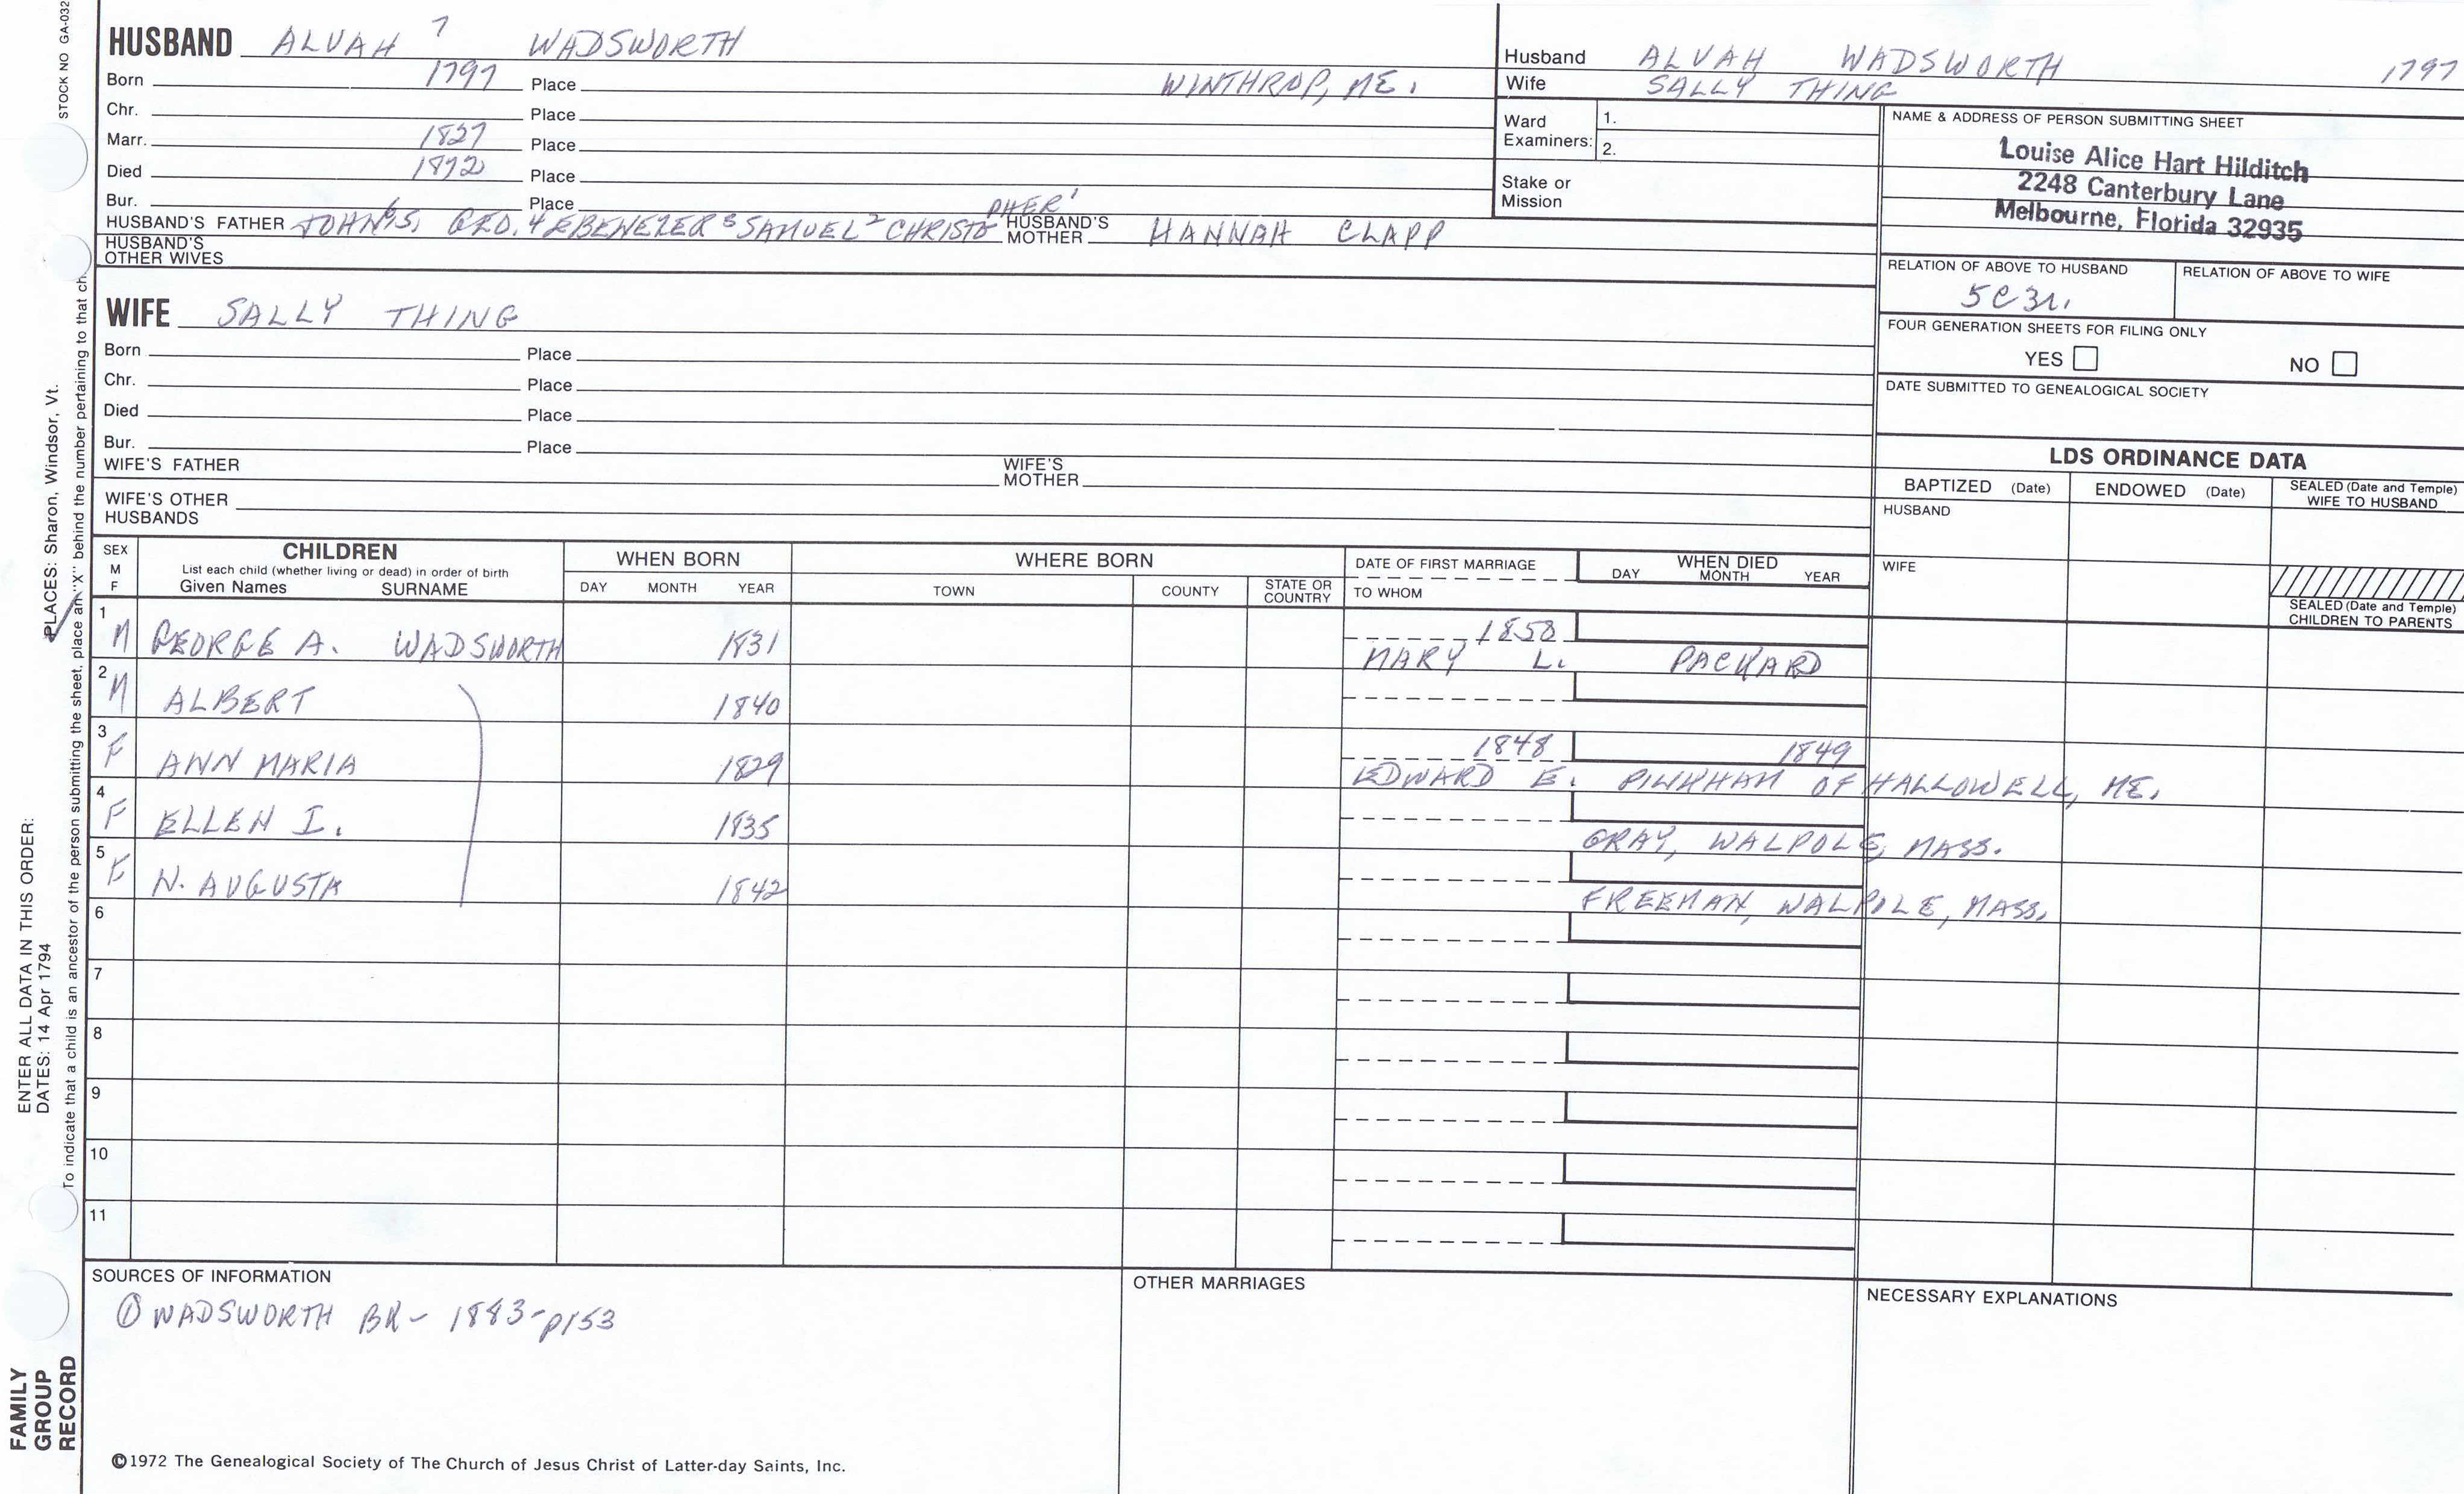 STOCK NO GA-032
HUSBAND ALVAH 7 WADSWORTH
Born 1797 Place WINTHROP, ME.
Chr. Place
Marr. 1827 Place
Died 1872 Place
Bur. Place
HUSBAND'S FATHER JOHN 6 S. GEO. 4 EBENEZER 3 SAMUEL 2 CHRISTOPHER 1 HUSBAND'S MOTHER HANNAH CLAPP
HUSBAND'S OTHER WIVES
Husband ALVAH WADSWORTH 1797
Wife SALLY THING
Ward Examiners: 1.
2.
Stake or Mission
NAME & ADDRESS OF PERSON SUBMITTING SHEET
Louise Alice Hart Hilditch
2248 Canterbury Lane
Melbourne, Florida 32935
RELATION OF ABOVE TO HUSBAND RELATION OF ABOVE TO WIFE
5C3r.
FOUR GENERATION SHEETS FOR FILING ONLY
YES NO
DATE SUBMITTED TO GENEALOGICAL SOCIETY
WIFE SALLY THING
Born Place
Chr. Place
Died Place
Bur. Place
WIFE'S FATHER WIFE'S MOTHER
WIFE'S OTHER HUSBANDS
LDS ORDINANCE DATA
BAPTIZED (Date) ENDOWED (Date) SEALED (Date and Temple) WIFE TO HUSBAND
HUSBAND
WIFE
SEALED (Date and Temple) CHILDREN TO PARENTS
SEX M F CHILDREN WHEN BORN WHERE BORN DATE OF FIRST MARRIAGE WHEN DIED
List each child (whether living or dead) in order of birth
Given Names SURNAME DAY MONTH YEAR TOWN COUNTY STATE OR COUNTRY TO WHOM DAY MONTH YEAR
1 M GEORGE A. WADSWORTH 1831 1858
MARY L. PACKARD
2 M ALBERT 1840
3 F ANN MARIA 1829 1848 1849
EDWARD E. PINKHAM OF HALLOWELL, ME.
4 F ELLEN I. 1835
GRAY, WALPOLE, MASS.
5 F N. AUGUSTA 1842
FREEMAN, WALPOLE, MASS.
6
7
8
9
10
11
SOURCES OF INFORMATION
① WADSWORTH BK - 1883 - p153
OTHER MARRIAGES
NECESSARY EXPLANATIONS
©1972 The Genealogical Society of The Church of Jesus Christ of Latter-day Saints, Inc.
FAMILY GROUP RECORD
ENTER ALL DATA IN THIS ORDER:
DATES: 14 Apr 1794
PLACES: Sharon, Windsor, Vt.
To indicate that a child is an ancestor of the person submitting the sheet, place an "X" behind the number pertaining to that ch